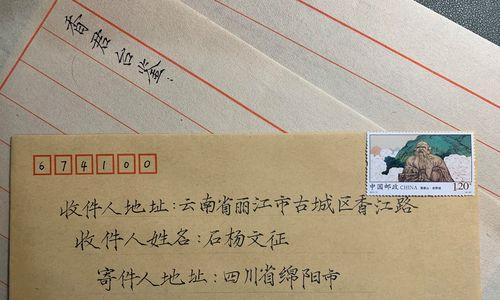 香君台鉴:
674100
中国邮政 CHINA
1.20元
收件人地址:云南省丽江市古城区香江路
收件人姓名:石杨文征
寄件人地址:四川省绵阳市